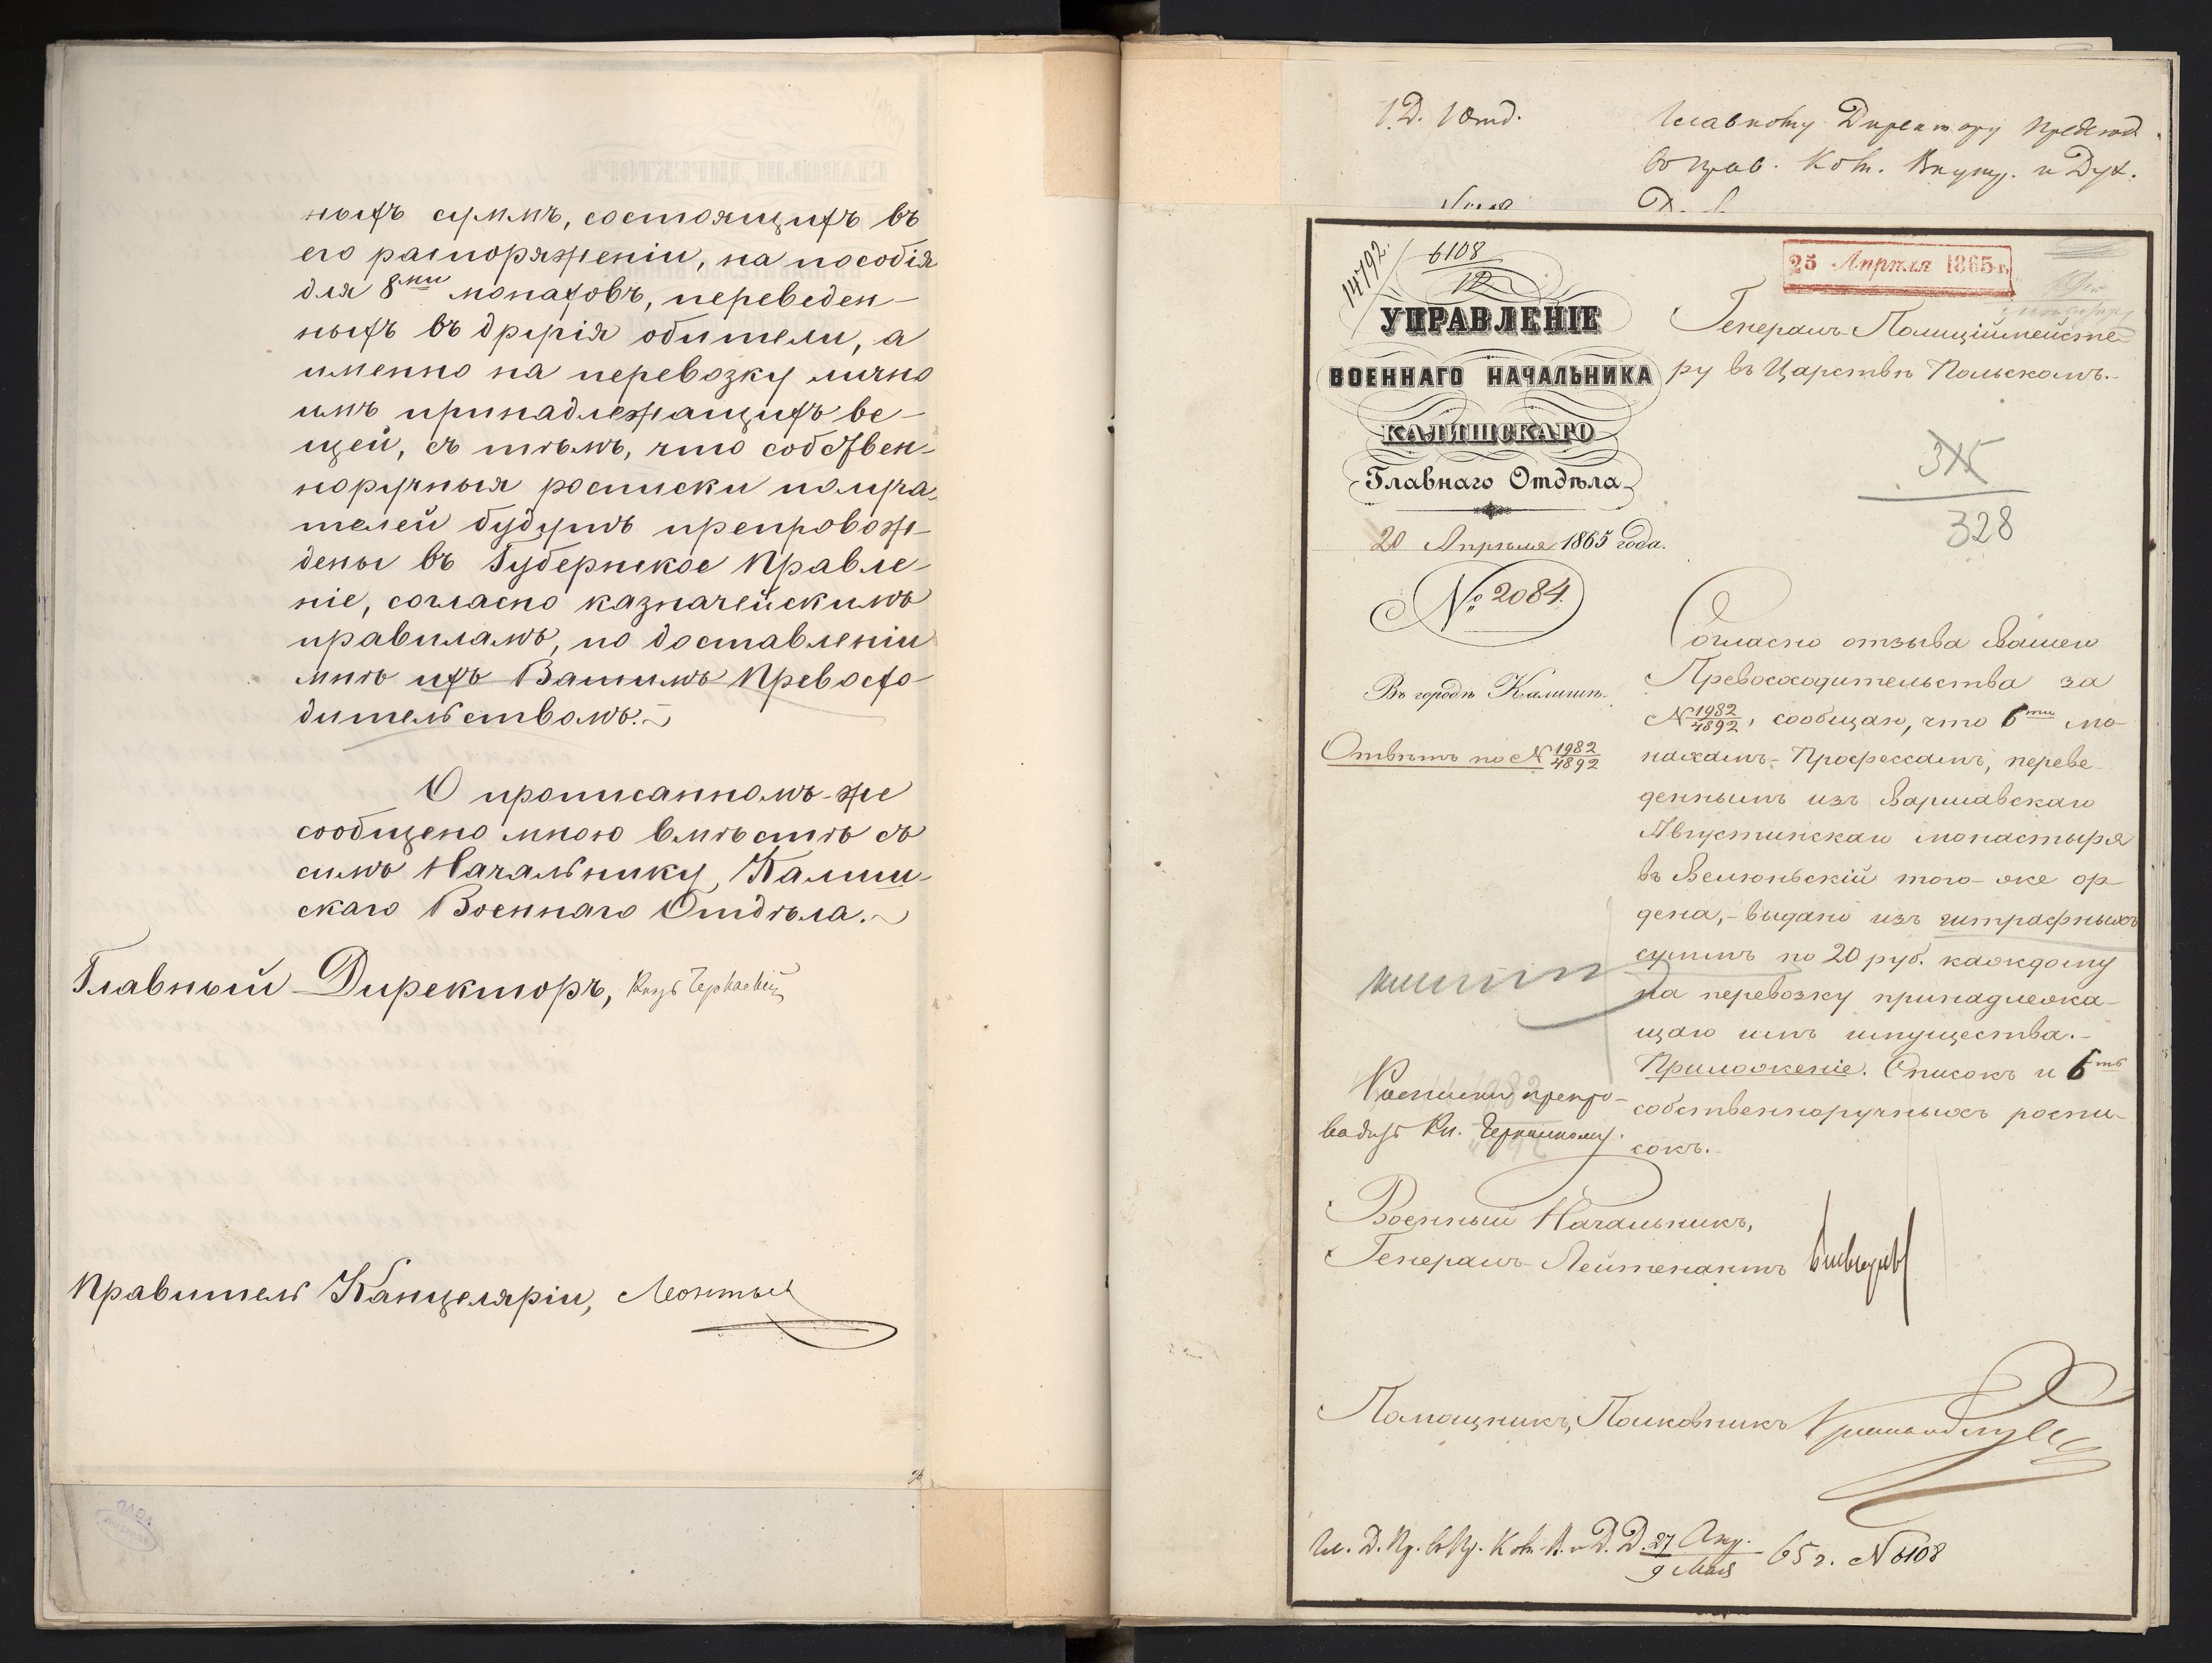 ныхъ суммъ, состоящихъ въ
его распоряженіи, на пособія
для 8ми монаховъ, переведен-
ныхъ въ другія обители, а
именно на перевозку лично
имъ принадлежащихъ ве-
щей, съ тѣмъ, что собствен-
норучныя росписки получа-
телей будутъ препровож-
дены въ Губернское Правле-
ніе, согласно казначейскимъ
правиламъ, по доставленіи
мнѣ ихъ Вашимъ Превосхо-
дительствомъ.
О прописанномъ-же
сообщено мною вмѣстѣ съ
симъ Начальнику Калиш-
скаго Военнаго Отдѣла.
Главный Директоръ, Князь Черкаскій
Правитель Канцеляріи, Леонтьев
1 Д. 1 Отд.
Главному Директору Предсѣд.
въ Прав. Ком. Внутр. и Дух.
14792
6108
25 Апрѣля 1865 г.
УПРАВЛЕНІЕ
ВОЕННАГО НАЧАЛЬНИКА
КАЛИШСКАГО
Главнаго Отдѣла
20 Апрѣля 1865 года.
№ 2084.
Въ городѣ Калишѣ.
Отвѣтъ по № 1982/4892
Генералъ-Полиціймейсте-
ру въ Царствѣ Польскомъ.
315
328
Согласно отзыва Вашего
Превосходительства за
№ 1982/4892, сообщаю, что 6ти мо-
нахамъ-Профессамъ, переве-
деннымъ изъ Варшавскаго
Августинскаго монастыря
въ Велюньскій того-же ор-
дена,- выдано изъ штрафныхъ
суммъ по 20 руб. каждому
на перевозку принадлежа-
щаго имъ имущества.-
Приложеніе. Списокъ и 6ть
собственноручныхъ роспи-
сокъ.
Росписки препро-
вадить Кн. Черкаскому.
Военный Начальникъ,
Генералъ-Лейтенантъ
Помощникъ, Полковникъ
Гл. Д. Пр. въ Пр. Ком. В. и Д. Д. 27 Апр./9 Мая 65 г. № 6108